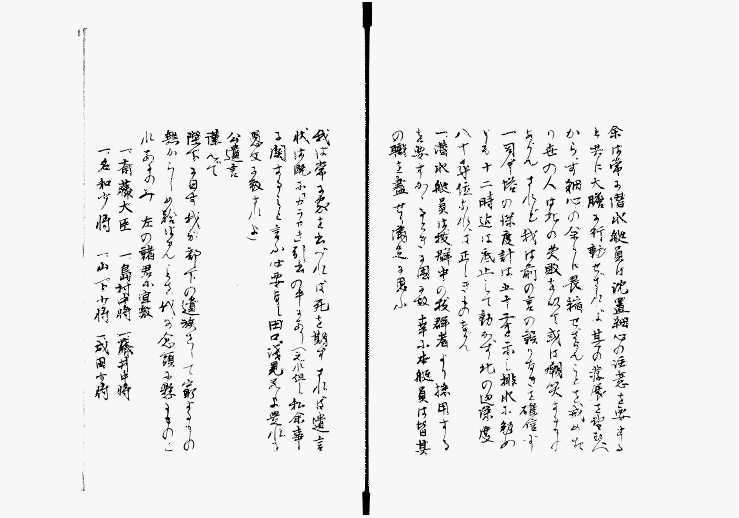 余は常に潜水艇員は沈置細心の注意を要する
と共に大膽に行動せざれば其の発展を望む可
からず細心の余り畏縮せざらんことを戒めた
り世の人は此の失敗を以て或は嘲笑するもの
あらんされど我は前言の誤りなきを確信す
一司令塔の深度計は五十二を示し排水に勉め
ども十二時迄は底止して動かず此の辺深度は
八十尋位なれば正しきものならん
一潜水艇員は抜群中の抜群者より採用する
を要すかゝるときに困る故幸に本艇員は皆其
の職を盡せり満足に思ふ
我は常に家を出づれば死を期すされば遺言
状は既に「カラサキ」引出の中にあり（之れ但し私余事
に関すること言ふ必要なし田口浅見兄よ之れを
愚父に致されよ）
公遺言
謹んで
陛下に白す我が部下の遺族をして窮するもの
無からしめ給はらんことを我が念頭に懸るものこ
れあるのみ 左の諸君に宜敷
一斎藤大臣 一島村中将 一藤井中将
一名和少将 一山下少将 一成田少将